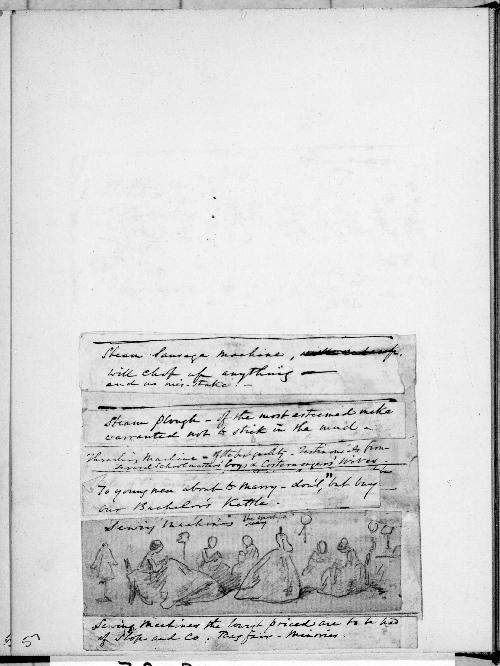 Steam Sausage machine,
will chop up anything —
and no mistake! —
Steam Plough — of the most esteemed make
warranted not to stick in the mud —
Thrashing Machine — of quality — Testimonials from
Schoolmasters' boys & Costermongers' Wives.
To young men about to marry — don't, "but buy
our Bachelor's Kettle."
Sewing Machines
Sewing machines the lowest priced are to be had
of Slop and Co. Mayfair — Minories.